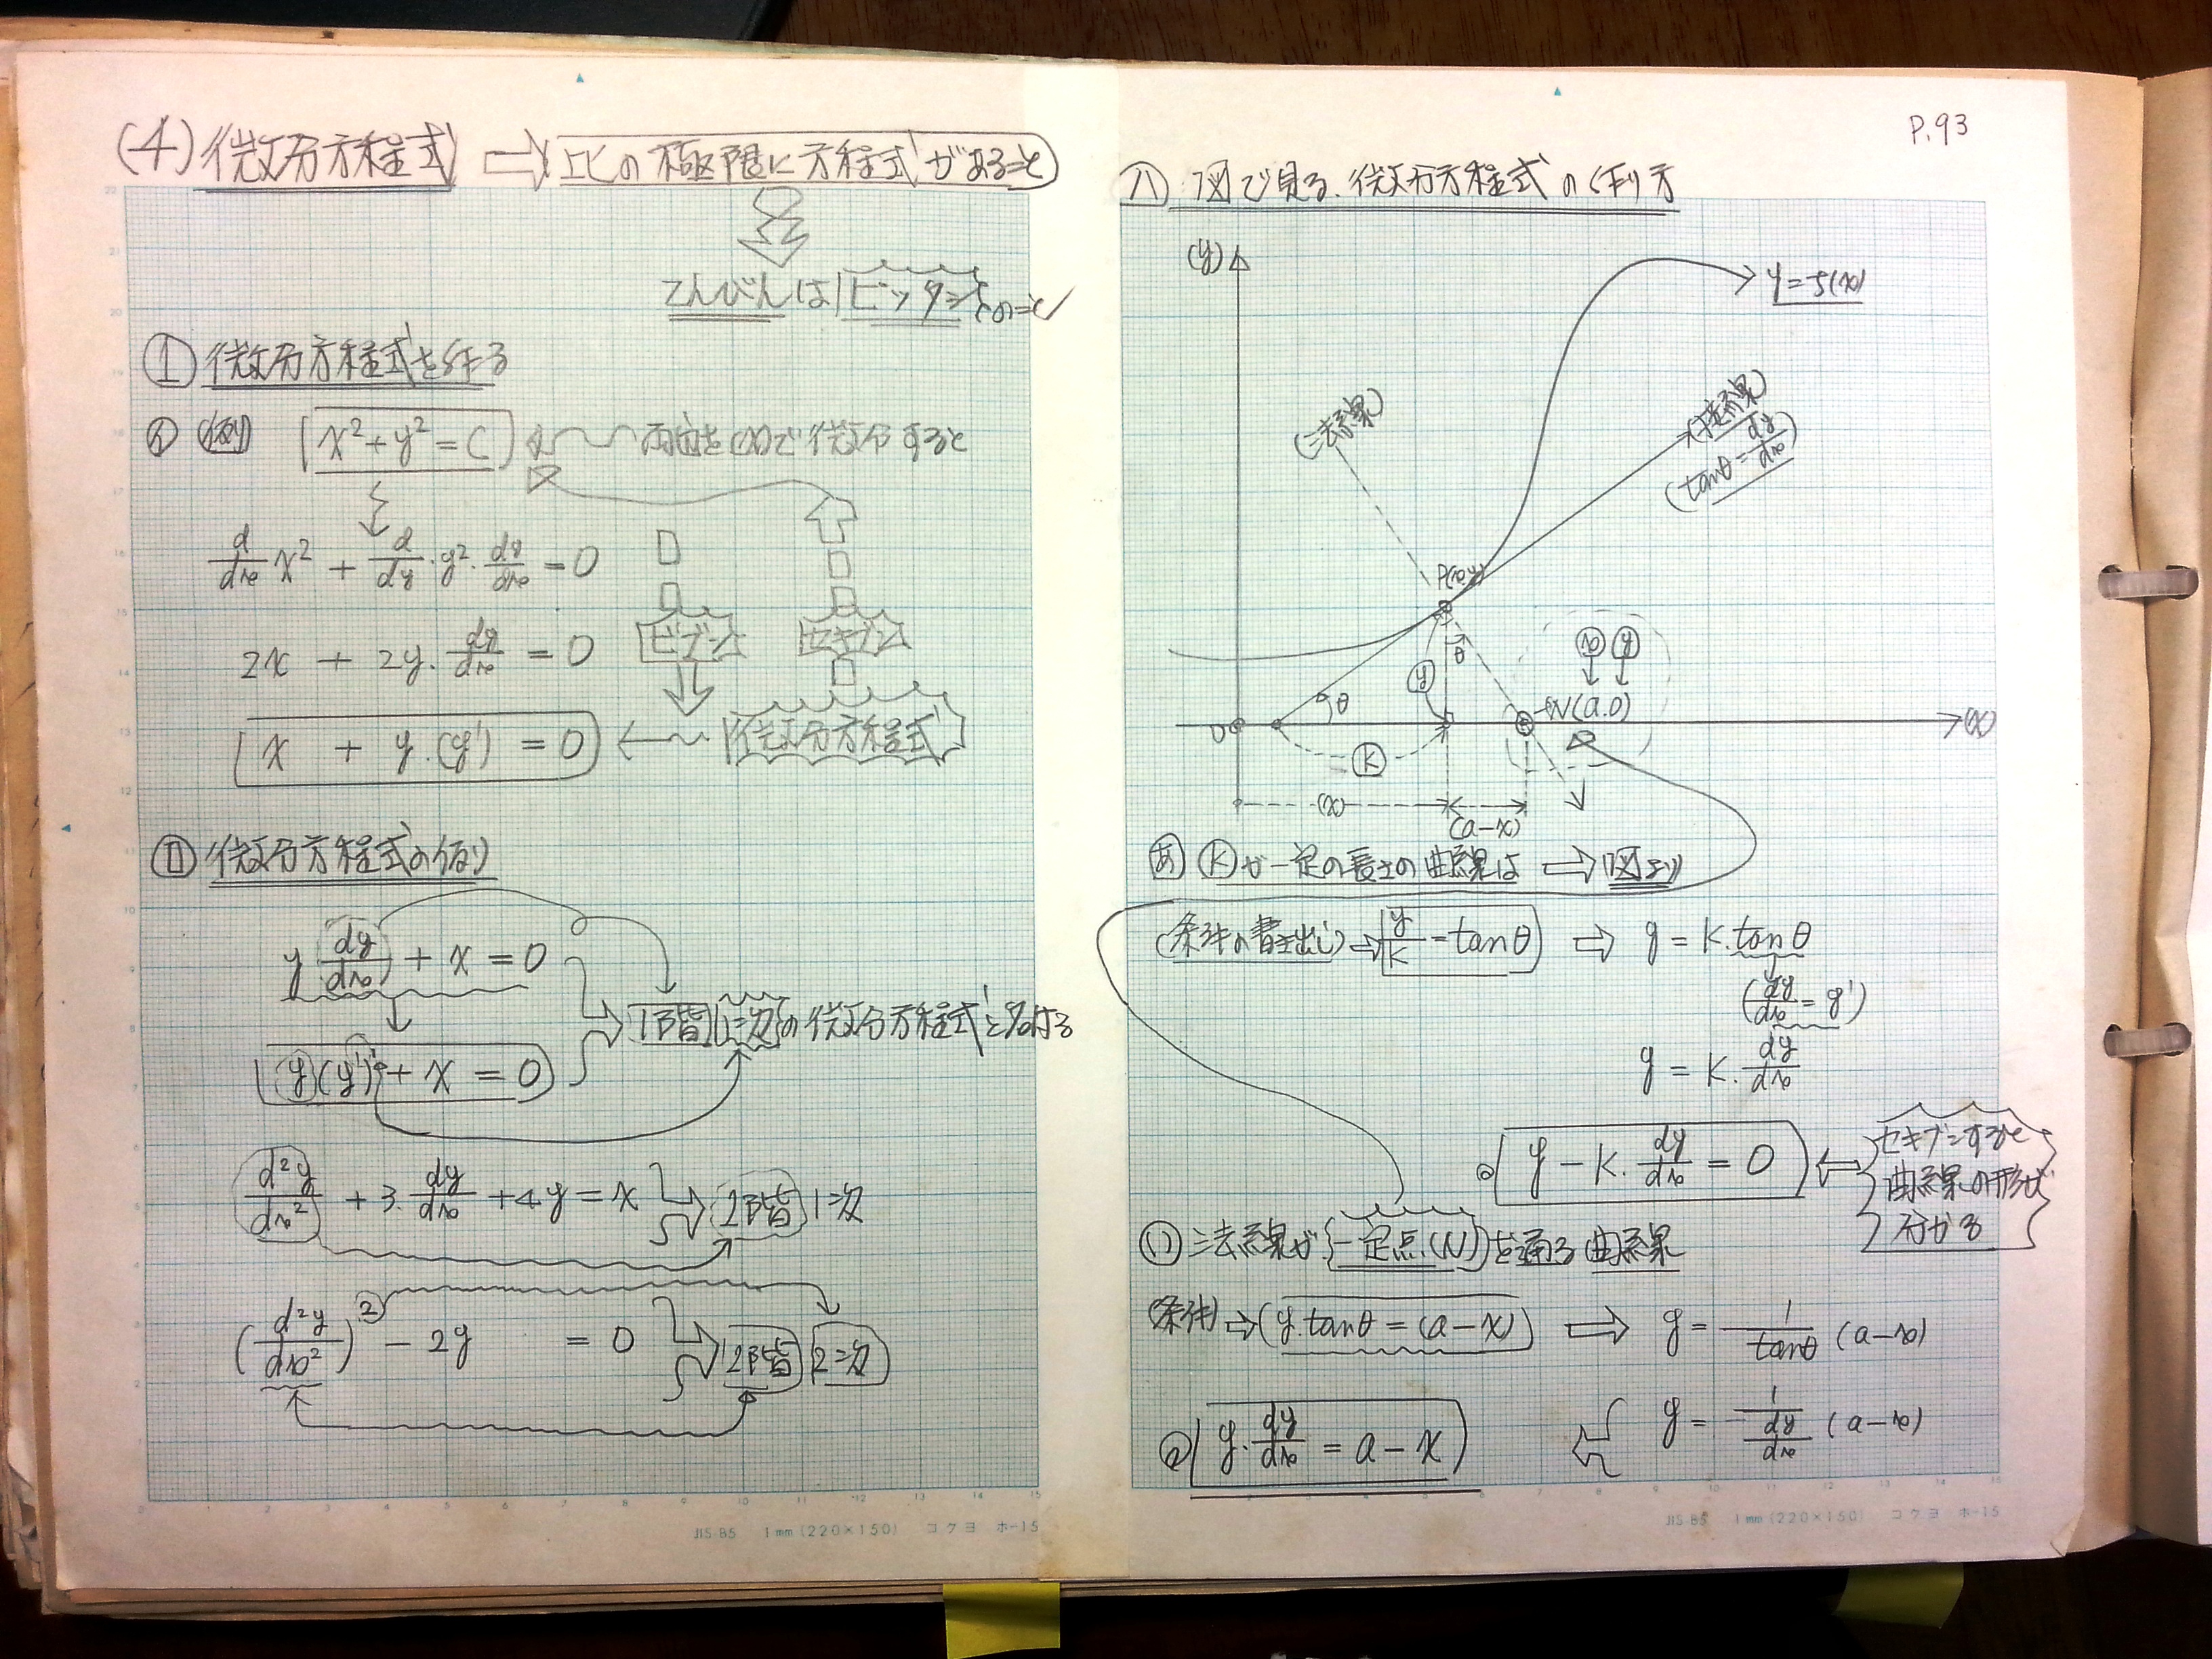 (4) 微分方程式 ⇒ 比の極限に方程式があること
てんびんは ピッタシ のこと
① 微分方程式を作る
(例) x² + y² = C 両辺を(x)で微分すると
d/dx x² + d/dy・y²・dy/dx = 0
2x + 2y・dy/dx = 0 ビブン セキブン
x + y・(y') = 0 ← 微分方程式
Ⅱ 微分方程式の例
y dy/dx + x = 0
1階 1次 の微分方程式と名付る
(y)(y')¹ + x = 0
d²y/dx² + 3・dy/dx + 4y = x 2階 1次
(d²y/dx²)² - 2y = 0 2階 2次
P.93
ハ 図で見る、微分方程式の作り方
(y)
y = f(x)
(法線)
(接線)
(tanθ = dy/dx)
P(x,y)
θ
(x) (y)
(y)
θ
N(a.0)
0
(x)
(K)
(x)
(a-x)
(あ) (K)が一定の長さの曲線は ⇒ 図より
(条件の書き出し) → y/K = tanθ ⇒ y = K・tanθ
(dy/dx = y')
y = K・dy/dx
y - K・dy/dx = 0
セキブンすると
曲線の形が
分かる
(い) 法線が 一定点(N) を通る曲線
(条件) ⇒ (y・tanθ = (a-x)) ⇒ y = 1/tanθ (a-x)
y = 1/(dy/dx) (a-x)
y・dy/dx = a - x
JIS-B5 1mm (220×150) コクヨ ホ-15
JIS-B5 1mm (220×150) コクヨ ホ-15